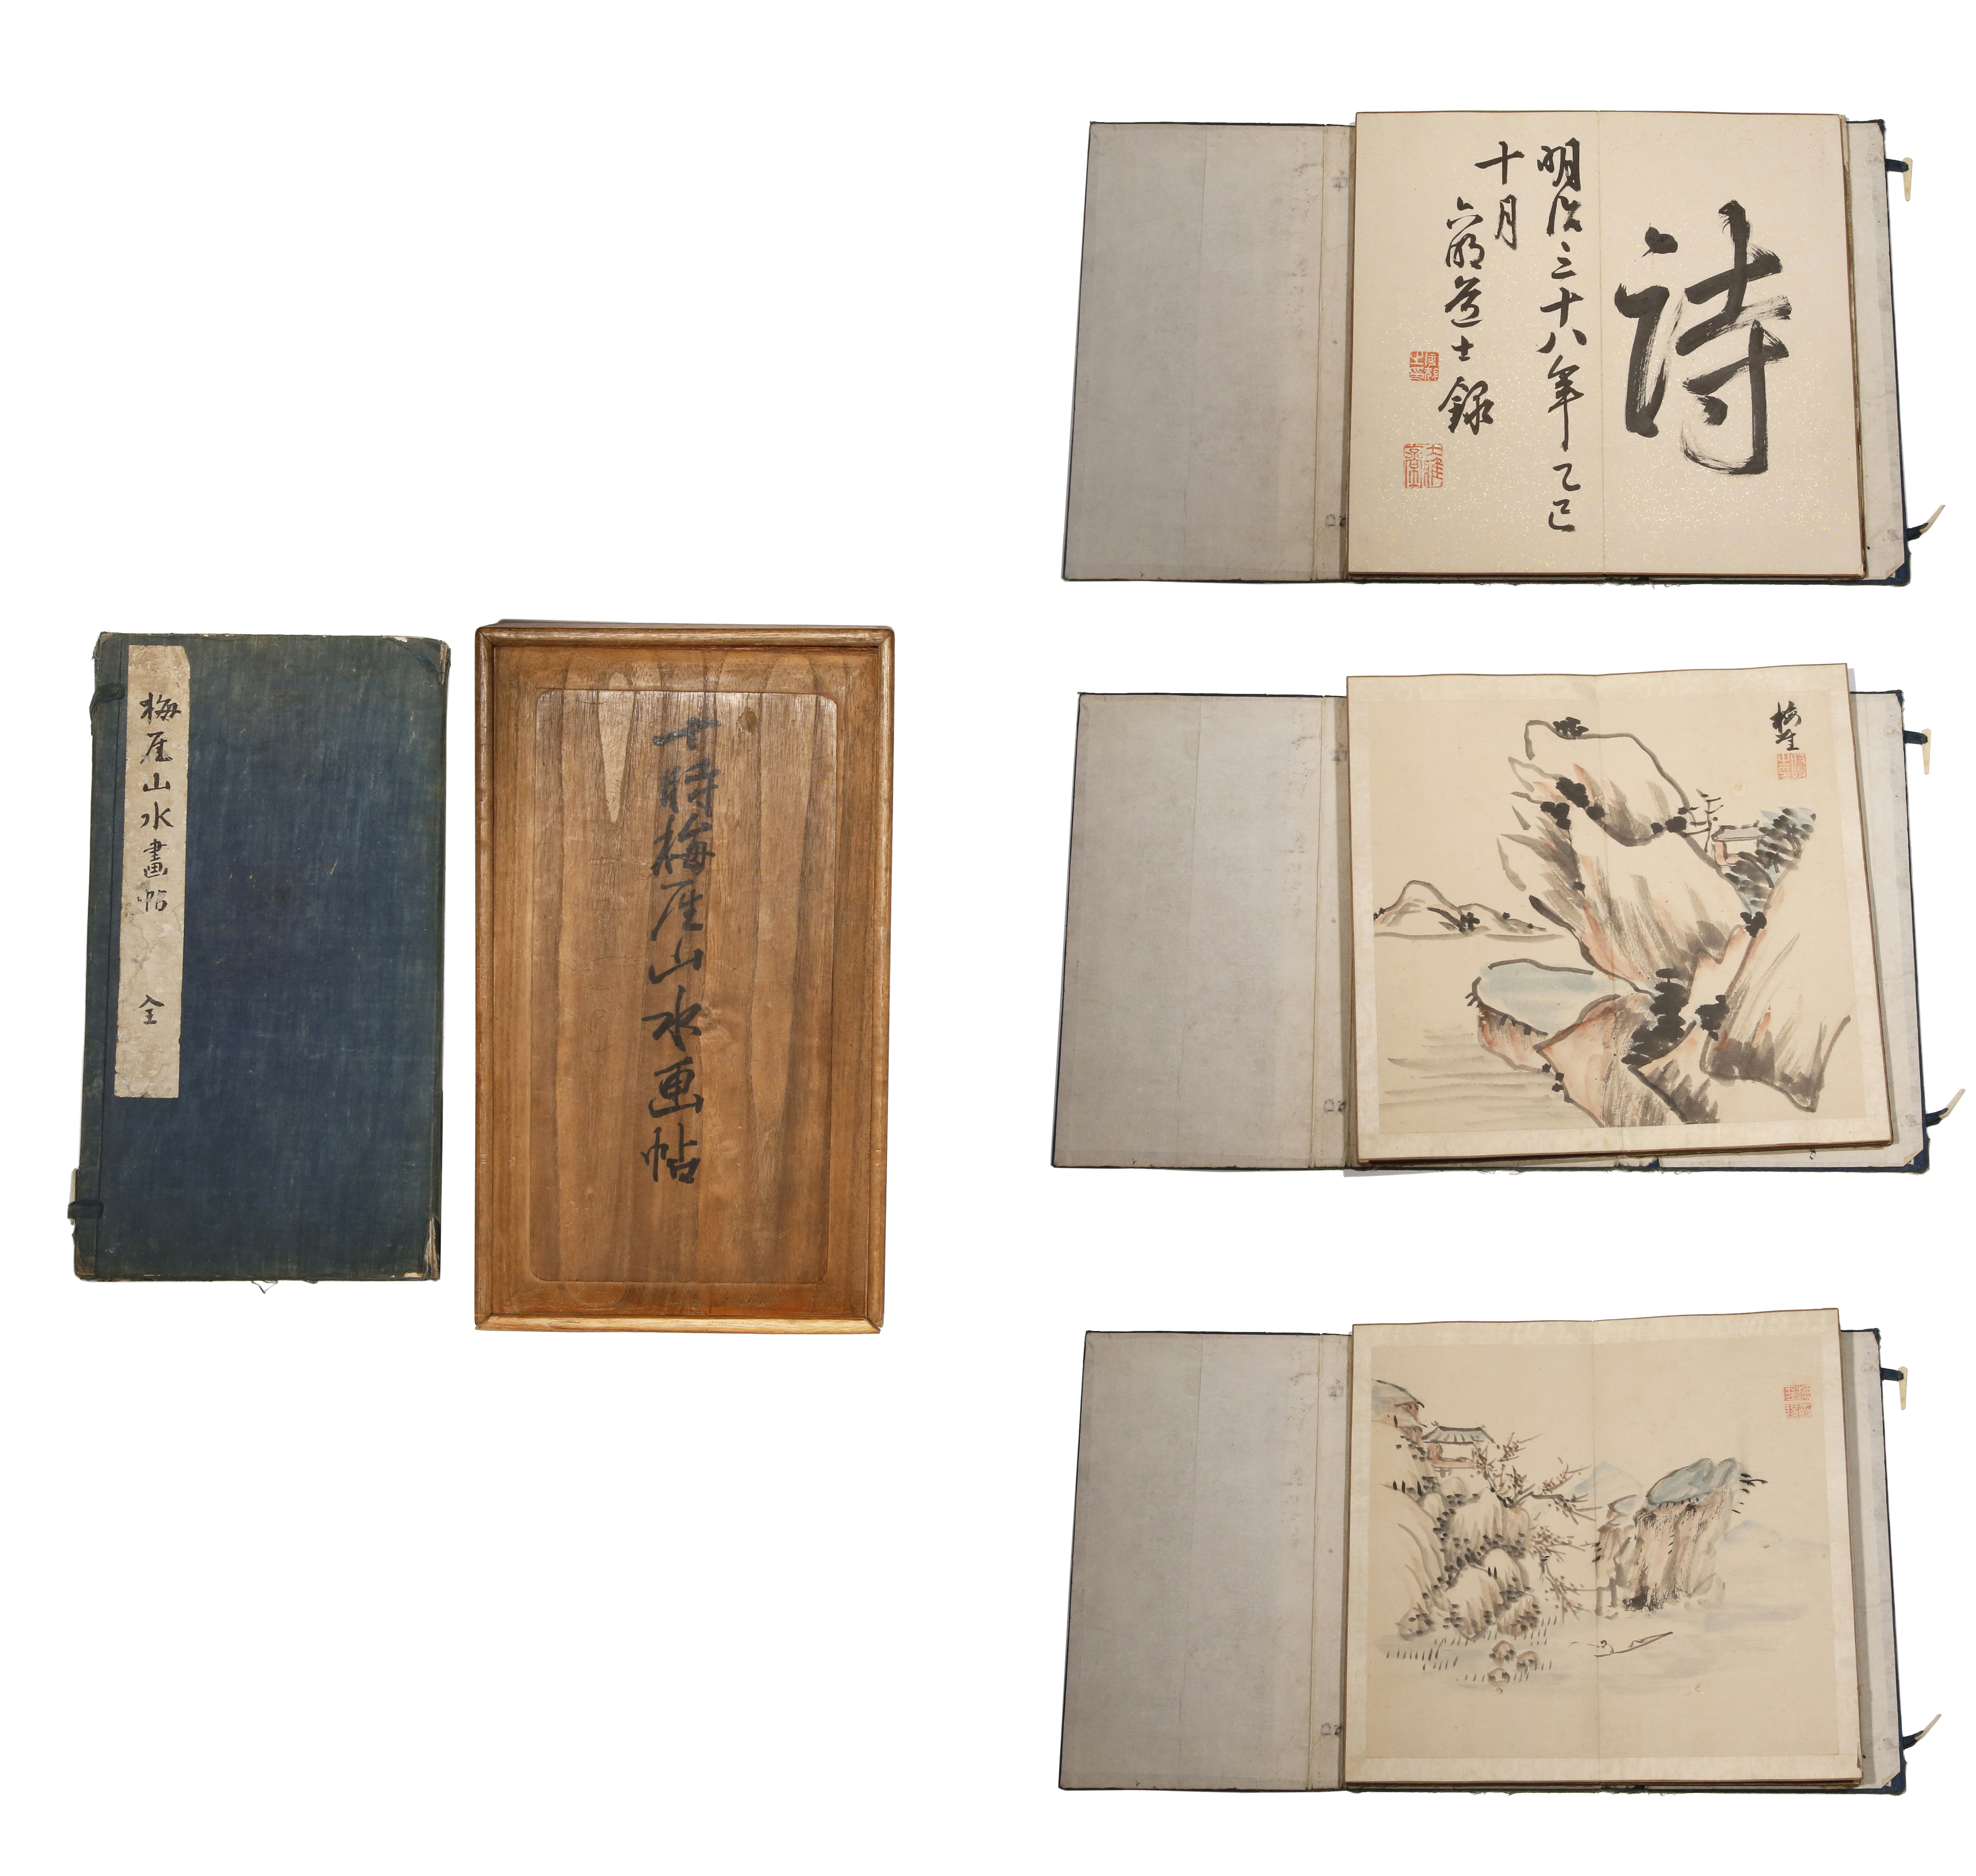 梅厓山水畫帖 全
十時梅厓山水画帖
詩
明治三十八年乙巳
十月
道士録
梅厓